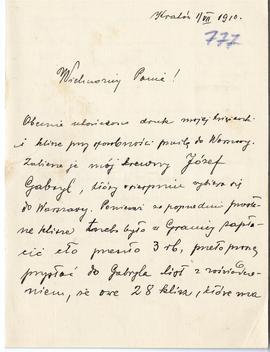 Kraków 1/VII 1910.
777
Wielmożny Panie!
Obecnie ukończono druk mojej książeczki
i klisze przy sposobności prześlę do Warszawy.
Zabierze je mój krewny Józef
Gabryl, który w sierpniu wybiera się
do Warszawy. Ponieważ za poprzednie
klisze trzeba było w Granicy zapła-
cić cło przeszło 3 rb, przeto proszę
przysłać do Gabryla list z poświadcze-
niem, że owe 28 klisz, które ma